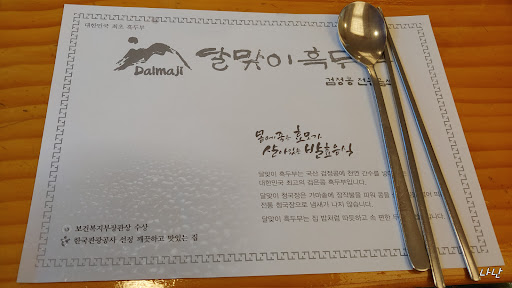 대한민국 최초 흑두부
Dalmaji
달맞이 흑두
검정콩 전
몸에 좋은 효모가
살아있는 발효음식
달맞이 흑두부는 국산 검정콩에 천연 간수를
대한민국 최고의 검은콩 흑두부입니다.
달맞이 청국장은 가마솥에 장작불을 피워 콩을
전통 청국장으로 냄새가 나지 않습니다.
달맞이 흑두부는 집 밥처럼 따듯하고 속 편한
보건복지부장관상 수상
한국관광공사 선정 깨끗하고 맛있는 집
나난